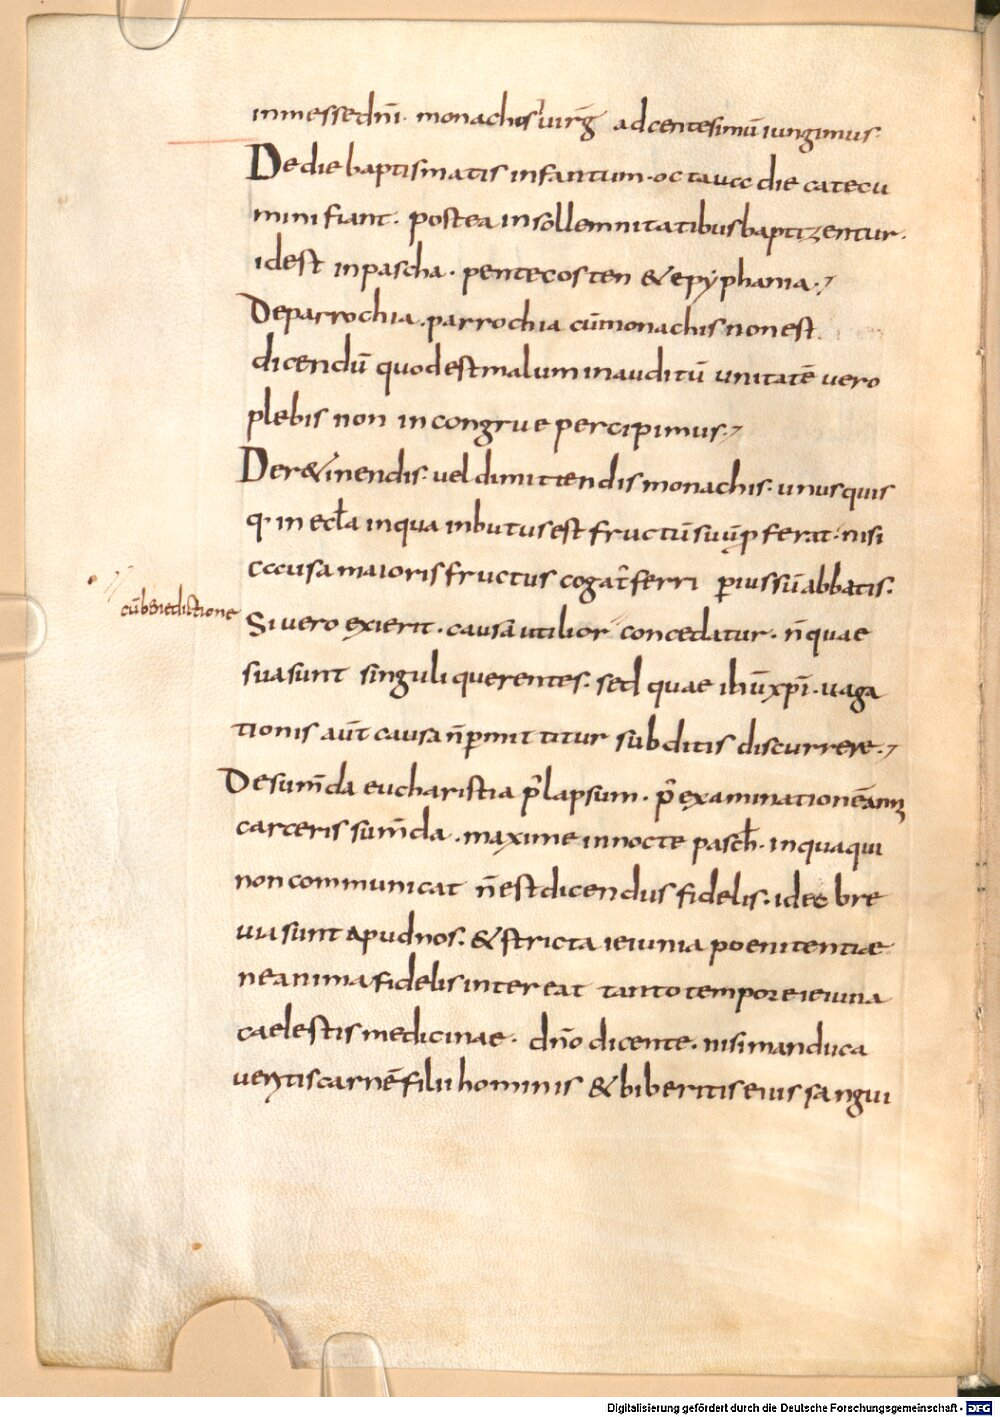 inmessedn̄i. monachisꝰ uirḡ adcentesimū iungimus.
Dedie baptismatis infantum. octaua die catecu
mini fiant. postea insollemnitatibus baptizentur.
idest inpascha. pentecosten & epyphania.,
Deparrochia. parrochia cūmonachis nonest
dicendū quodestmalum inauditū unitatē uero
plebis non incongrue percipimus.,
Der&inendis. uel dimittendis monachis. unusquis
q. in eccła inqua inbutusest fructūsuūꝓferat. nisi
causa maioris fructus cogat̄ ferri ꝑiussū abbatis.
cūbenedictione
Siuero exierit. causa utilior concedatur. n̄quae
suasunt singuli querentes. sed quae ihūxp̄i. uaga
tionis aūt causa n̄ꝑmittitur subditis discurrere.,
Desum̄da eucharistia p̄lapsum. p̄ examinationē
carceris sum̄da. maxime innocte pasch̄. inquaqui
noncommunicat n̄estdicendus fidelis. ideo bre
uia sunt apudnos. & stricta ieiunia poenitentiae
neanima fidelis intereat tantotempore ieiuna
caelestis medicinae. dn̄o dicente. nisi manduca
ueritis carnē filii hominis & biberitis eius sangui
Digitalisierung gefördert durch die Deutsche Forschungsgemeinschaft - DFG